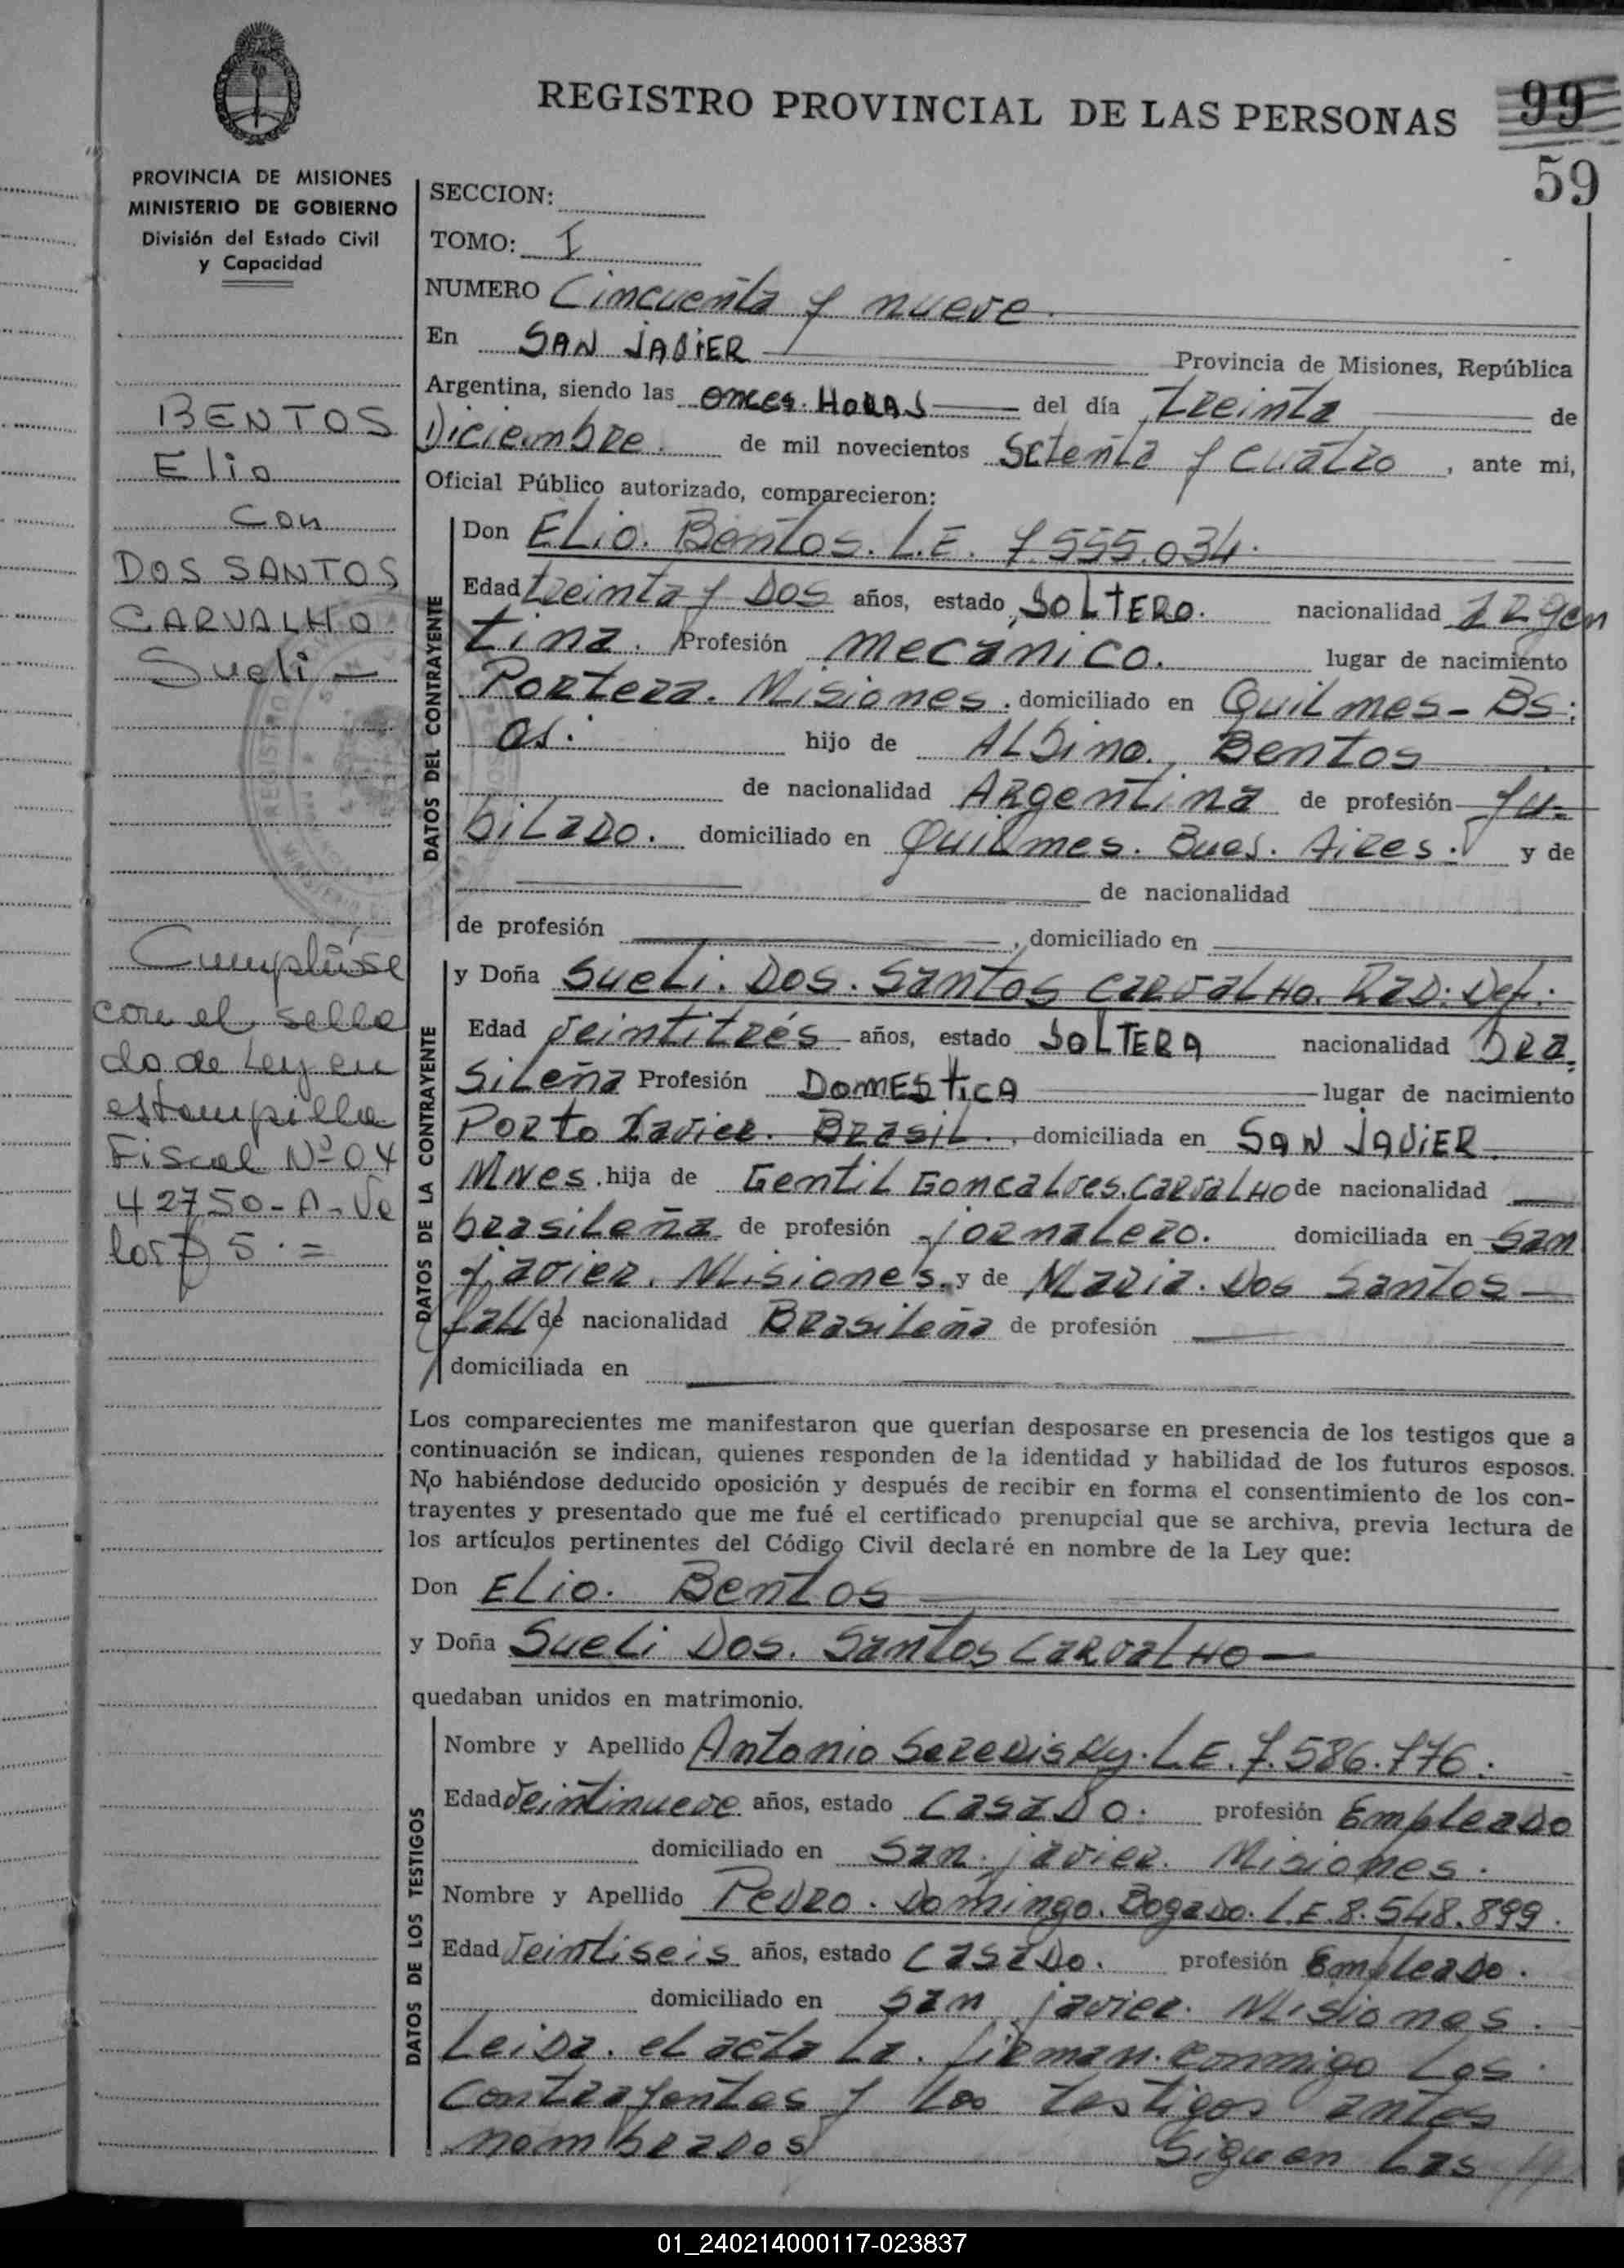 REGISTRO PROVINCIAL DE LAS PERSONAS
99
59
PROVINCIA DE MISIONES
MINISTERIO DE GOBIERNO
División del Estado Civil
y Capacidad
BENTOS
Elio
con
DOS SANTOS
CARVALHO
Sueli -
Cumplióse
con el sella
do de Ley en
estampilla
Fiscal Nº 04
42750-A-Va
lor $ 5.=
SECCION:
TOMO: I
NUMERO Cincuenta y nueve.
En SAN JAVIER Provincia de Misiones, República
Argentina, siendo las onces. HORAS del día treinta de
Diciembre. de mil novecientos Setenta y cuatro, ante mi,
Oficial Público autorizado, comparecieron:
DATOS DEL CONTRAYENTE
Don ELio. Bentos. L.E. 7.555.034.
Edad treinta y Dos años, estado SOLTERO. nacionalidad Argen
tina. Profesión mecánico. lugar de nacimiento
Portera. Misiones. domiciliado en Quilmes - Bs:
As. hijo de ALbino. Bentos
de nacionalidad Argentina de profesión Ju-
biLado. domiciliado en Quilmes. Bues. Aires. y de
de nacionalidad
de profesión , domiciliado en
DATOS DE LA CONTRAYENTE
y Doña SueLi. Dos. Santos CarvaLHo. Rad. Def.
Edad veintitrés años, estado SOLTERA nacionalidad bra.
siLeña Profesión DOMEStiCA lugar de nacimiento
Porto Xavier. BrasiL. , domiciliada en SAN JAViER.
Mnes. hija de GentiL GoncaLves. CarvaLHo de nacionalidad
brasiLeña de profesión jornaLero. domiciliada en San
javier. Misiones. y de Maria. Dos Santos
(fall) de nacionalidad BrasiLeña de profesión
domiciliada en
Los comparecientes me manifestaron que querían desposarse en presencia de los testigos que a
continuación se indican, quienes responden de la identidad y habilidad de los futuros esposos.
No habiéndose deducido oposición y después de recibir en forma el consentimiento de los con-
trayentes y presentado que me fué el certificado prenupcial que se archiva, previa lectura de
los artículos pertinentes del Código Civil declaré en nombre de la Ley que:
Don ELio. Bentos
y Doña SueLi Dos. Santos CarvaLHo
quedaban unidos en matrimonio.
DATOS DE LOS TESTIGOS
Nombre y Apellido Antonio L.E. 7.586.776.
Edad veintinueve años, estado casaDo. profesión EmpleaDo
domiciliado en San. javier. Misiones.
Nombre y Apellido PeDro. Domingo. BogaDo. L.E. 8.548.899.
Edad veintiseis años, estado casaDo. profesión EmpleaDo.
domiciliado en San javier. Misiones.
LeiDa. eL acta La. firman. conmigo Los.
contrayentes y Los testigos antes
nombraDos Siguen Las //
01_240214000117-023837